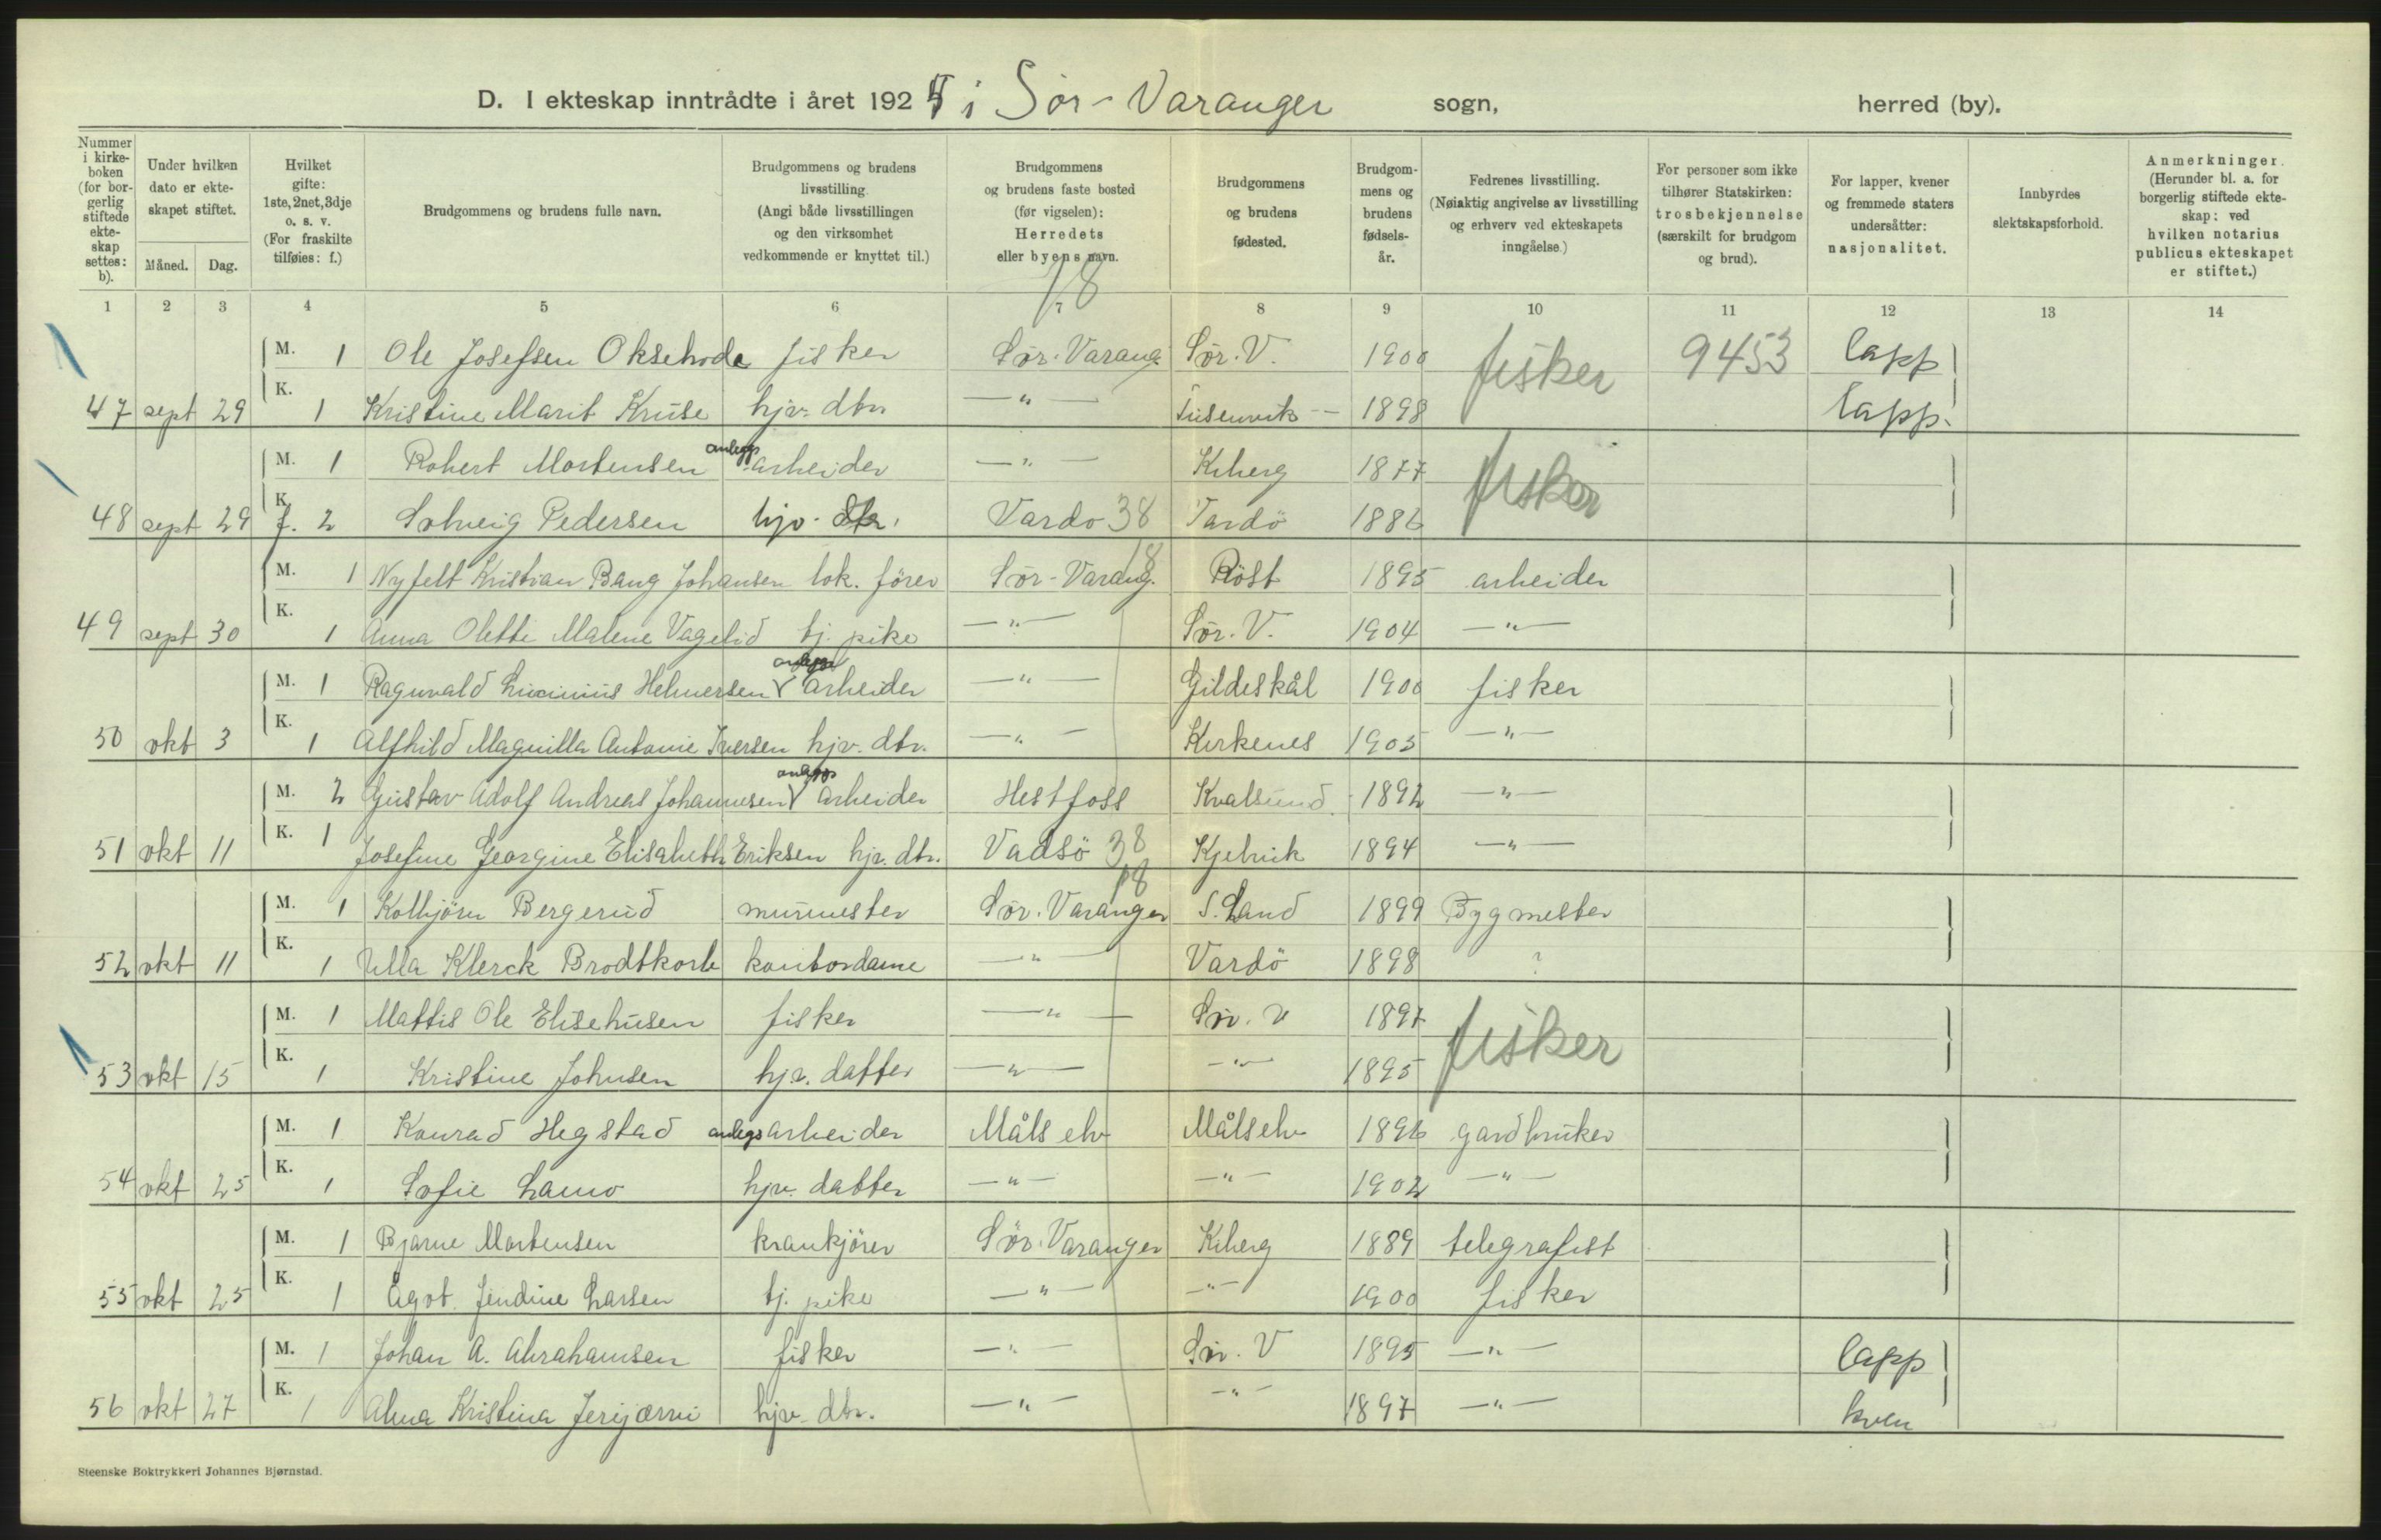 D. I ekteskap inntrådte i året 1925 i Sör-Varanger sogn, herred (by).
Nummer i kirke-boken (for bor-gerlig stiftede ekte-skap settes: b).
Under hvilken dato er ekte-skapet stiftet.
Måned. Dag.
Hvilket gifte: 1ste, 2net, 3dje o. s. v. (For fraskilte tilføies: f.)
Brudgommens og brudens fulle navn.
Brudgommens og brudens livsstilling (Angi både livsstillingen og den virksomhet vedkommende er knyttet til.)
Brudgommens og brudens faste bosted (før vigselen): Herredets eller byens navn.
Brudgommens og brudens fødested.
Brudgom-mens og brudens fødsels-år.
Fedrenes livsstilling. (Nøiaktig angivelse av livsstilling og erhverv ved ekteskapets inngåelse.)
For personer som ikke tilhører Statskirken: trosbekjennelse (særskilt for brudgom og brud).
For lapper, kvener og fremmede staters undersåtter: nasjonalitet.
Innbyrdes slektskapsforhold.
Anmerkninger. (Herunder bl. a. for borgerlig stiftede ekte-skap: ved hvilken notarius publicus ekteskapet er stiftet.)
1 2 3 4 5 6 7 8 9 10 11 12 13 14
18
M. 1 Ole Josefsen Oksehode fisker Sör-Varang. Sör. V. 1900 fisker 9453 lapp
47 sept 29 K. 1 Kristine Marit Kruse hjv. dtr. —"— 1898 lapp.
M. 1 Robert Mortensen anleggsarbeider —"— Kiberg 1877 fisker
48 sept 29 K. f. 2 Solveig Pedersen hjv. dtr. Vardö 38 Vardö 1886
18
M. 1 Nyfelt Kristian Bang Johansen lok. förer Sör-Varang. Röst 1895 arbeider
49 sept 30 K. 1 Anna Olette Malene Vagelid tj. pike —"— Sör. V. 1904 —"—
M. 1 Ragnvald Helmersen anleggsarbeider —"— Gildeskål 1900 fisker
50 okt 3 K. 1 Alfhild Magnilla Antonie Iversen hjv. dtr. —"— Kirkenes 1905 —"—
M. 2 Gustav Adolf Andreas Johannesen anleggsarbeider Hestfoss Kvalsund 1892 —"—
51 okt 11 K. 1 Josefine Georgine Elisabeth Eriksen hjv. dtr. Vadsö 38 Kjelvik 1894 —"—
18
M. 1 Kolbjörn Bergerud murmester Sör. Varanger S. Land 1899 Bygmester
52 okt 11 K. 1 Ulla Klerck Brodtkorb kontordame —"— Vardö 1898 ?
M. 1 Mattis Ole Elisehusen fisker —"— Sör. V 1897 fisker
53 okt 15 K. 1 Kristine Johnsen hjv. datter —"— —"— 1895
M. 1 Konrad Hegstad anlegsarbeider Målselv Målselv 1896 gardbruker
54 okt 25 K. 1 Sofie Lamo hjv. datter —"— —"— 1902 —"—
M. 1 Bjarne Mortensen krankjörer Sör. Varanger Kiberg 1889 telegrafist
55 okt 25 K. 1 Jendine Larsen tj. pike —"— —"— 1900 fisker
M. 1 Johan A. Abrahamsen fisker —"— Sör. V 1895 —"— lapp
56 okt 27 K. 1 Alma Kristina Jerijærvi hjv. dtr. —"— —"— 1897 —"— kven
Steenske Boktrykkeri Johannes Bjørnstad.